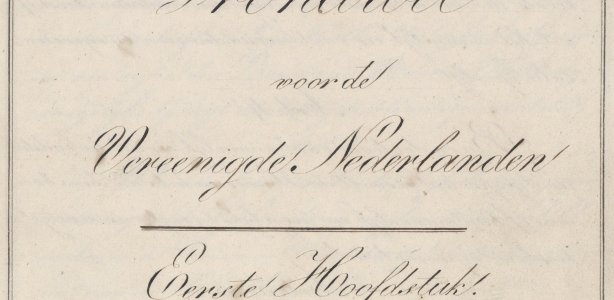 voor de
Vereenigde Nederlanden
Eerste Hoofdstuk.